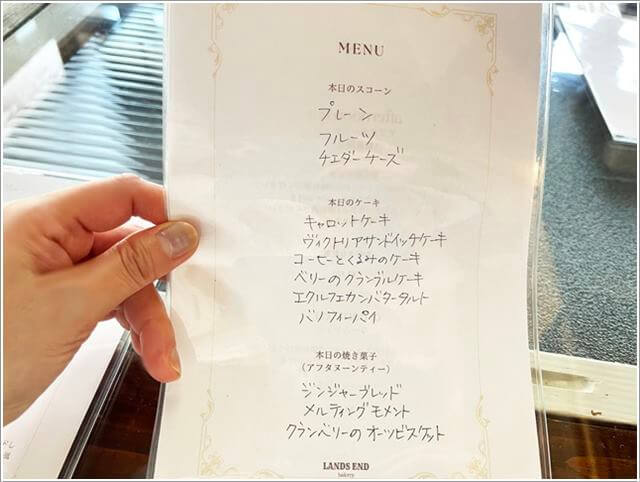 MENU
本日のスコーン
プレーン
フルーツ
チェダーチーズ
本日のケーキ
キャロットケーキ
ヴィクトリアサンドイッチケーキ
コーヒーとくるみのケーキ
ベリーのクランブルケーキ
エクルフェカンバタータルト
バノフィーパイ
本日の焼き菓子
(アフタヌーンティー)
ジンジャーブレッド
メルティングモメント
クランベリーのオーツビスケット
LANDS END
bakery